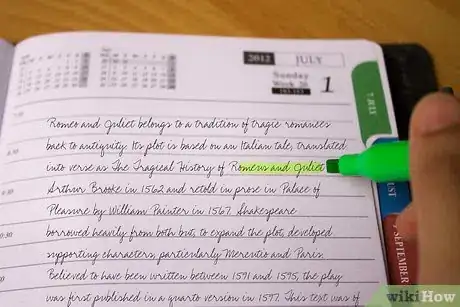 2012 JULY
Sunday
Week 26
1
7 JULY
Romeo and Juliet belongs to a tradition of tragic romances
back to antiquity. Its plot is based on an Italian tale, translated
into verse as The Tragical History of Romeus and Juliet
Arthur Brooke in 1562 and retold in prose in Palace of
Pleasure by William Painter in 1567. Shakespeare
borrowed heavily from both but, to expand the plot, developed
supporting characters, particularly Mercutio and Paris.
Believed to have been written between 1591 and 1595, the play
was first published in a quarto version in 1597. This text was of
SEPTEMBER
wikiHow